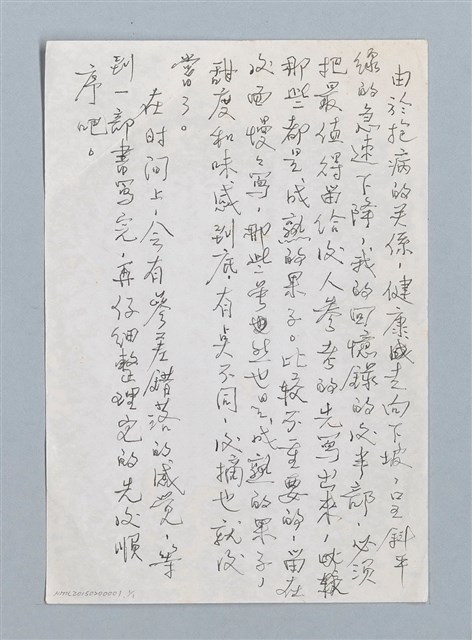 由於抱病的关係，健康成走向下坡，呈斜平
線的急速下降，我的回憶錄的後半部，必須
把最值得留給後人參考的先寫出來，比較
那些都是成熟的果子。比較不重要的，留在
後面慢々寫，那些當然也是成熟的果子，
甜度和味感到底，有点不同，後摘也就沒
當了。
在时间上，会有參差錯落的感覚，等
到一部書寫完，再仔細整理它的先後順
序吧。
NML20150200001.Y.